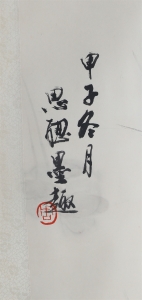 甲子冬月
思聪墨趣